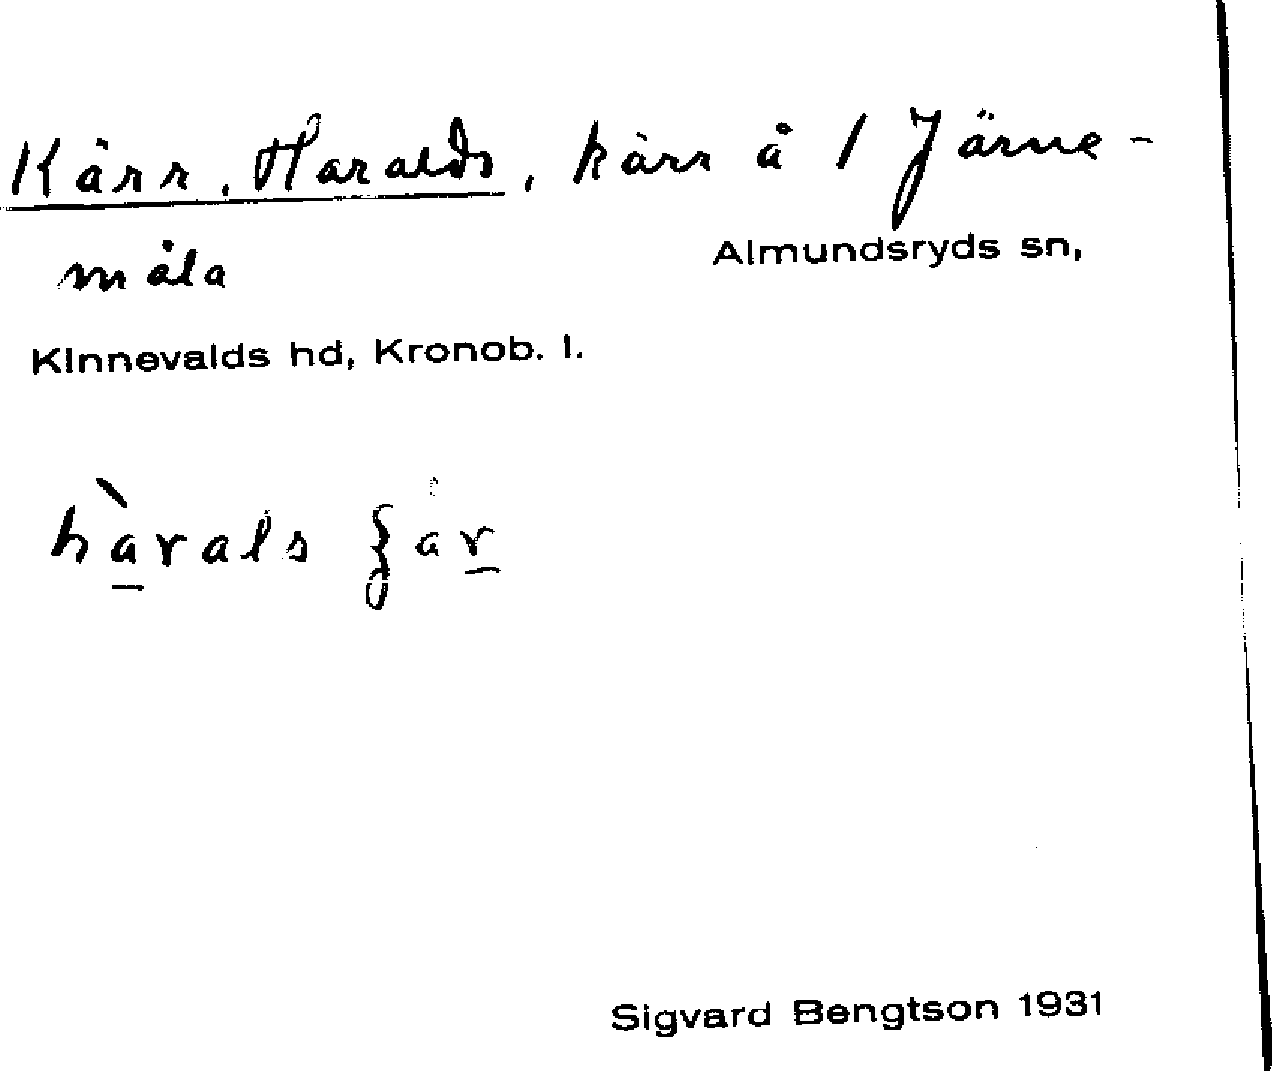 Kärr, Haralds, kärr å 1 Järne-
måla Almundsryds sn,
Kinnevalds hd, Kronob. l.
hàrals
Sigvard Bengtson 1931